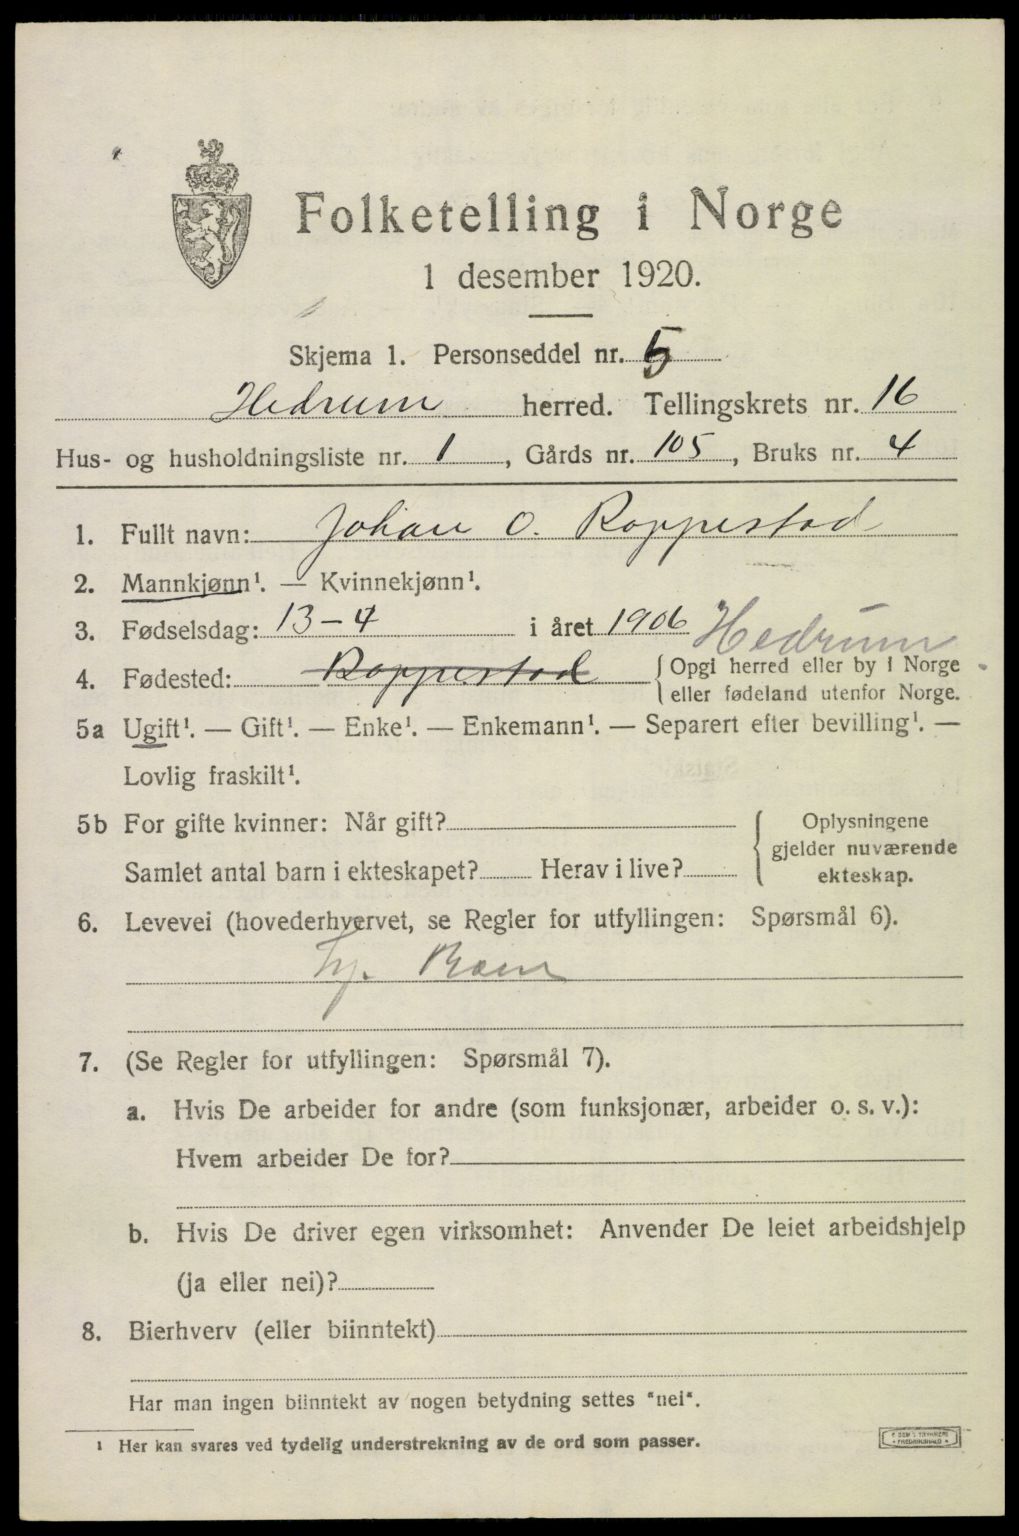 Folketelling i Norge
1 desember 1920.
Skjema 1. Personseddel nr. 5
Hedrum herred. Tellingskrets nr. 16
Hus- og husholdningsliste nr. 1, Gårds nr. 105, Bruks nr. 4
1. Fullt navn: Johan O. Roppestad
2. Mannkjønn¹. — Kvinnekjønn¹.
3. Fødselsdag: 13-4 i året 1906 Hedrum
4. Fødested: Roppestad { Opgi herred eller by i Norge
eller fødeland utenfor Norge.
5a Ugift¹. — Gift¹. — Enke¹. — Enkemann¹. — Separert efter bevilling¹. —
Lovlig fraskilt¹.
5b For gifte kvinner: Når gift?
Samlet antal barn i ekteskapet? Herav i live?
Oplysningene
gjelder nuværende
ekteskap.
6. Levevei (hovederhvervet, se Regler for utfyllingen: Spørsmål 6).
7. (Se Regler for utfyllingen: Spørsmål 7).
a. Hvis De arbeider for andre (som funksjonær, arbeider o. s. v.):
Hvem arbeider De for?
b. Hvis De driver egen virksomhet: Anvender De leiet arbeidshjelp
(ja eller nei)?
8. Bierhverv (eller biinntekt)
Har man ingen biinntekt av nogen betydning settes "nei".
¹ Her kan svares ved tydelig understrekning av de ord som passer.